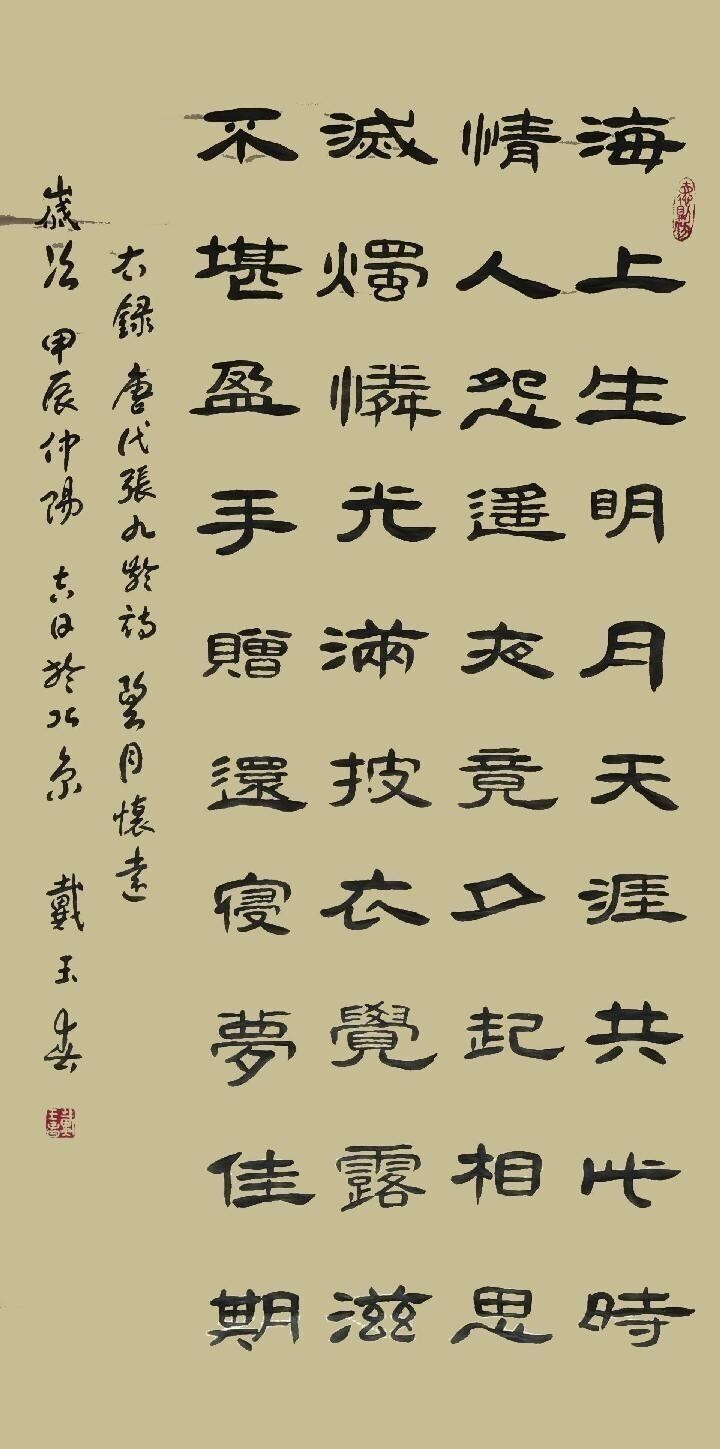 海上生明月天涯共此時
情人怨遥夜竟夕起相思
滅燭憐光滿披衣覺露滋
不堪盈手贈還寝夢佳期
右錄唐代張九齡詩望月懷遠
歲次甲辰仲陽吉日於北京戴玉春